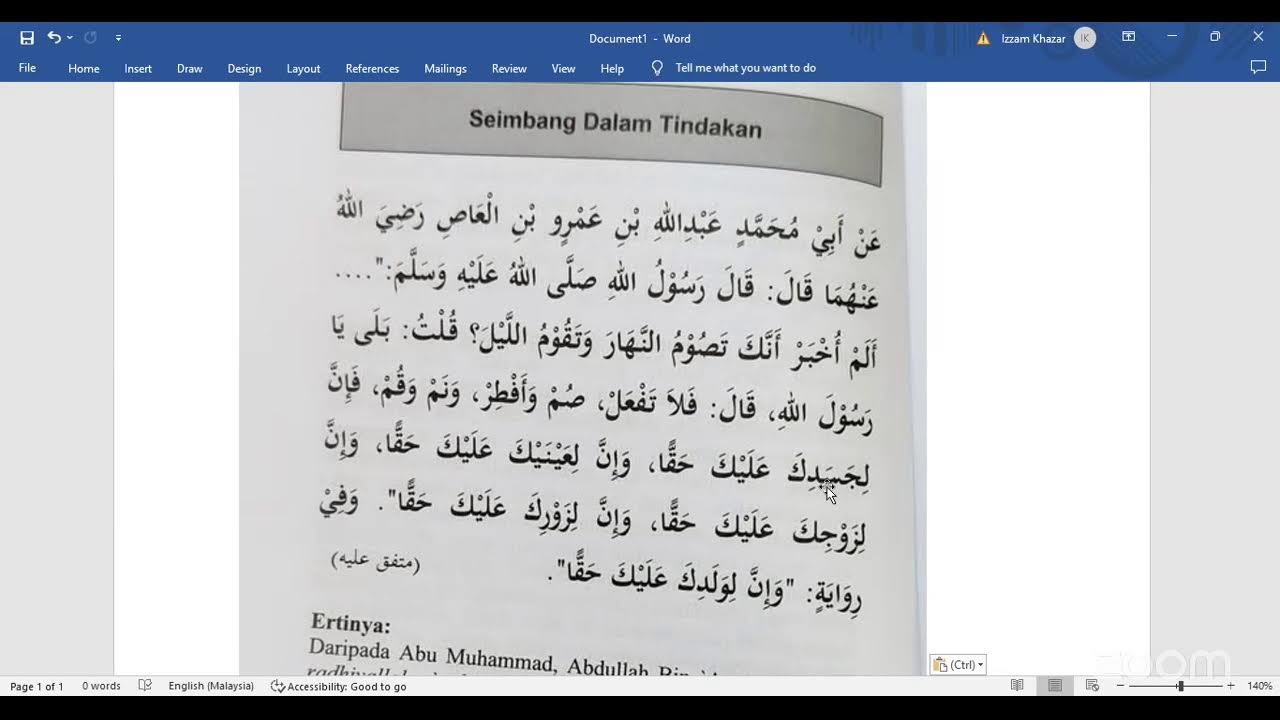 Document1 - Word
Izzam Khazar
IK
File Home Insert Draw Design Layout References Mailings Review View Help Tell me what you want to do
Seimbang Dalam Tindakan
عَنْ أَبِيْ مُحَمَّدٍ عَبْدِاللهِ بْنِ عَمْرٍو بْنِ الْعَاصِ رَضِيَ اللهُ
عَنْهُمَا قَالَ: قَالَ رَسُوْلُ اللهِ صَلَّى اللهُ عَلَيْهِ وَسَلَّمَ:"....
أَلَمْ أُخْبَرْ أَنَّكَ تَصُوْمُ النَّهَارَ وَتَقُوْمُ اللَّيْلَ؟ قُلْتُ: بَلَى يَا
رَسُوْلَ اللهِ، قَالَ: فَلاَ تَفْعَلْ، صُمْ وَأَفْطِرْ، وَنَمْ وَقُمْ، فَإِنَّ
لِجَسَدِكَ عَلَيْكَ حَقًّا، وَإِنَّ لِعَيْنَيْكَ عَلَيْكَ حَقًّا، وَإِنَّ
لِزَوْجِكَ عَلَيْكَ حَقًّا، وَإِنَّ لِزَوْرِكَ عَلَيْكَ حَقًّا". وَفِيْ
رِوَايَةٍ: "وَإِنَّ لِوَلَدِكَ عَلَيْكَ حَقًّا".
(متفق عليه)
Ertinya:
Daripada Abu Muhammad, Abdullah Bin
(Ctrl)
zoom
Page 1 of 1 0 words English (Malaysia) Accessibility: Good to go 140%